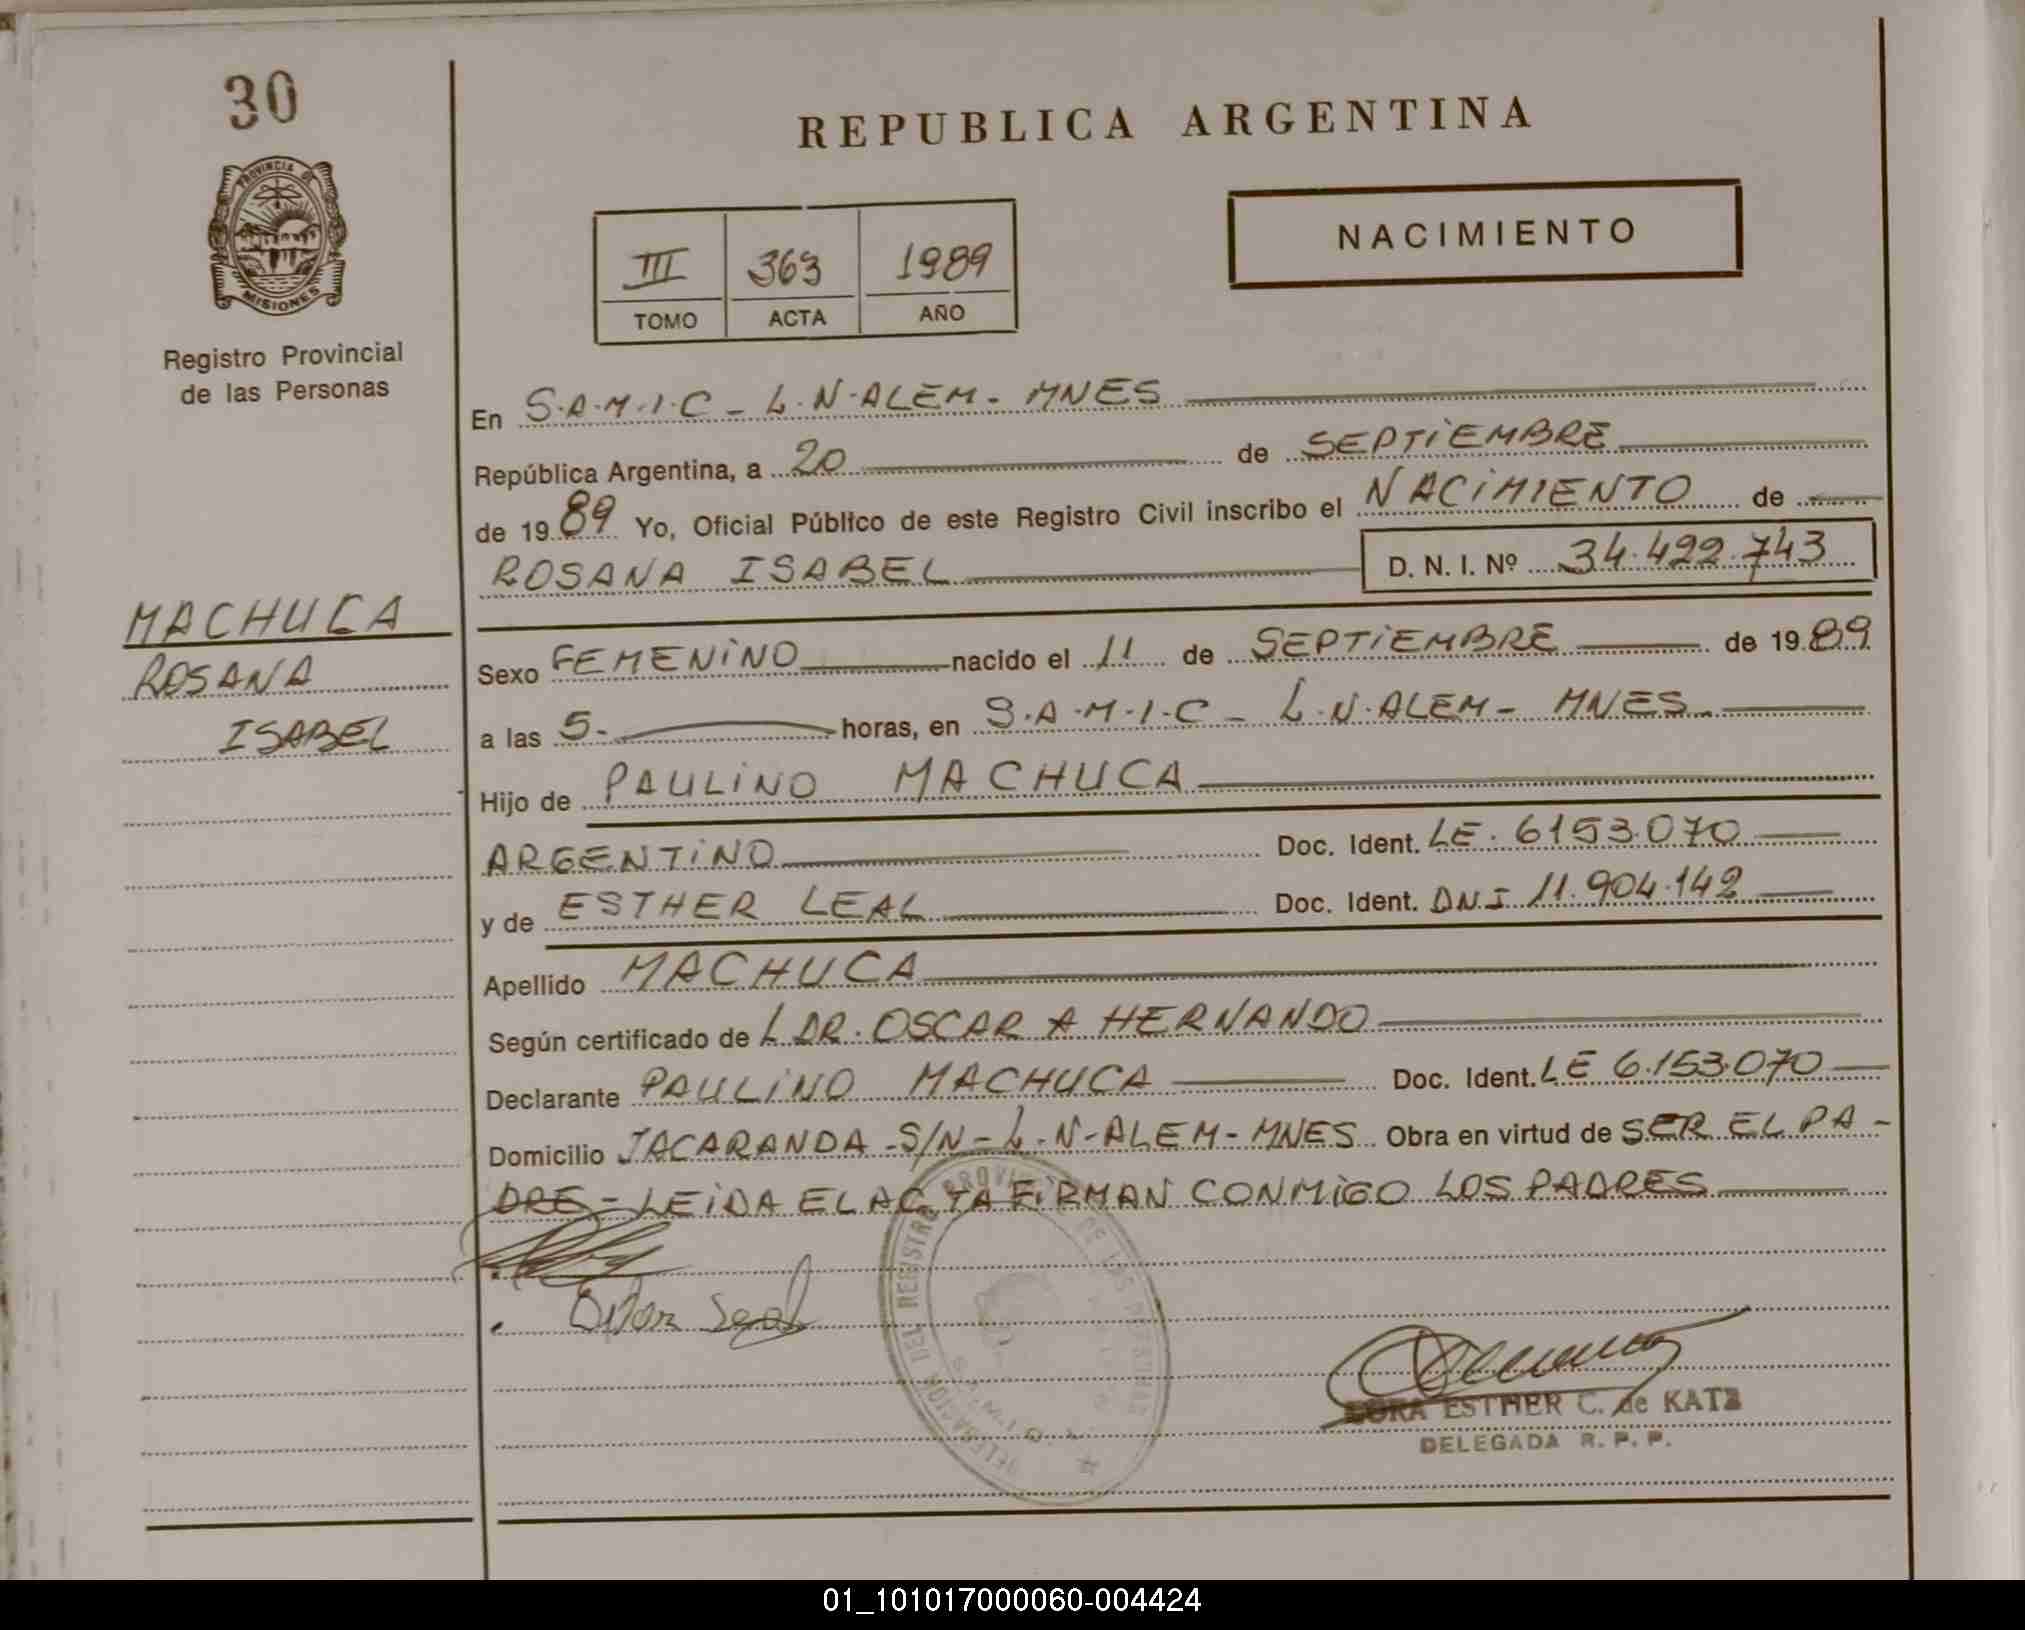 30
PROVINCIA DE
MISIONES
Registro Provincial
de las Personas
MACHUCA
ROSANA
ISABEL
REPUBLICA ARGENTINA
III 363 1989
TOMO ACTA AÑO
NACIMIENTO
En S.A.M.I.C - L.N.ALEM - MNES
República Argentina, a 20 de SEPTIEMBRE
de 1989 Yo, Oficial Público de este Registro Civil inscribo el NACIMIENTO de
ROSANA ISABEL D. N. I. Nº 34.422.743
Sexo FEMENINO nacido el 11 de SEPTIEMBRE de 1989
a las 5- horas, en S.A.M.I.C - L.N.ALEM - MNES
Hijo de PAULINO MACHUCA
ARGENTINO Doc. Ident. LE. 6153.070
y de ESTHER LEAL Doc. Ident. DNI 11.904.142
Apellido MACHUCA
Según certificado de L DR. OSCAR A HERNANDO
Declarante PAULINO MACHUCA Doc. Ident. LE 6.153.070
Domicilio JACARANDA S/N - L.N-ALEM - MNES Obra en virtud de SER EL PA-
DRE - LEIDA EL ACTA FIRMAN CONMIGO LOS PADRES
DELEGACION DEL REGISTRO PROVINCIAL DE LAS PERSONAS
DORA ESTHER C. de KATZ
DELEGADA R. P. P.
01_101017000060-004424